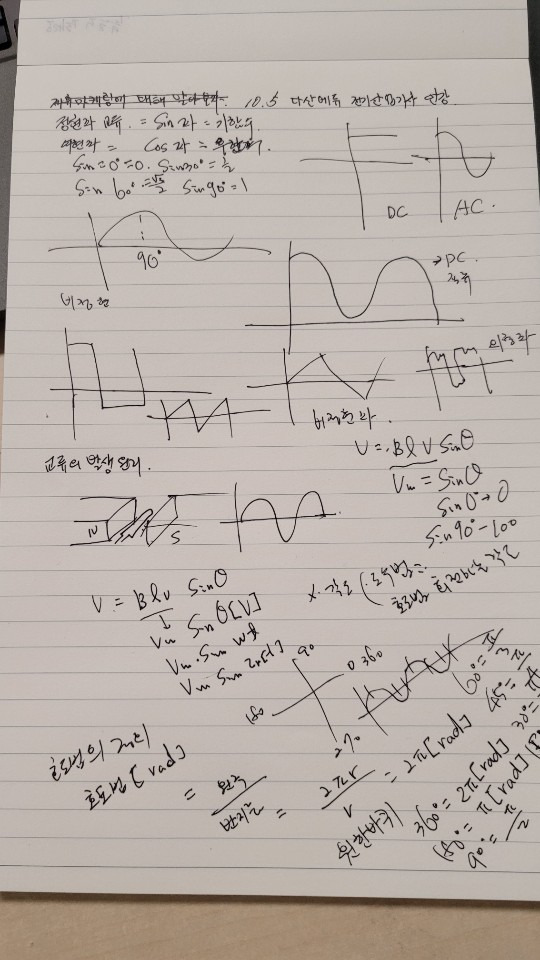 10.5 다산에듀 전기산업기사 인강.
정현파 교류. = Sin 파 = 기함수
여현파 = Cos 파 =
Sin = 0° = 0. Sin30° = 1/2
Sin 60° = √3/2 Sin90° = 1
DC
AC.
90°
→ DC.
직류
비정현
왜형파
비정현파.
V = Blv Sinθ
Vm = Sinθ
Sin0° → 0
Sin90° - 100
교류의 발생원리.
N
S
V = Blv Sinθ
↓
Vm Sin θ[V]
Vm · Sin wt
Vm Sin 2πft
x · 각도 (· 도수법 =
호도법 회전하는 각도
90
180
0 360
270
60° = π/3
45° = π/4
30° =
호도법의 정리
호도법 [rad]
= 원주/반지름 = 2πr/r = 2π[rad]
원 한바퀴 360° = 2π[rad]
180° = π[rad]
90° = π/2